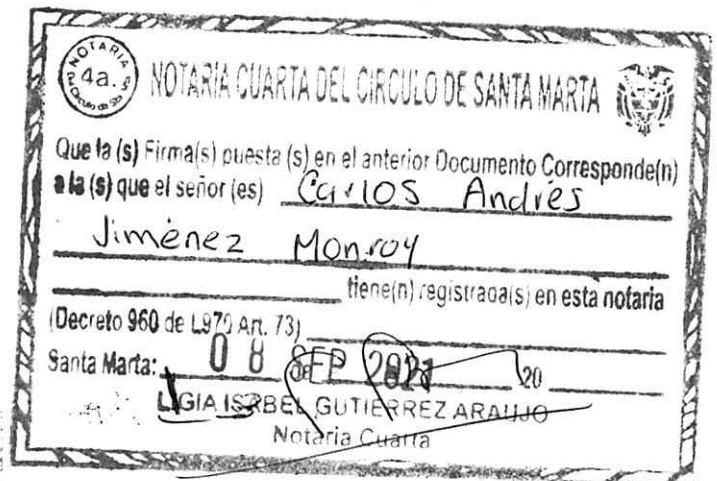 NOTARIA
4a.
NOTARIA CUARTA DEL CIRCULO DE SANTA MARTA
Que la (s) Firma(s) puesta (s) en el anterior Documento Corresponde(n)
a la (s) que el señor (es) Carlos Andrés
Jiménez Monroy
tiene(n) registrada(s) en esta notaria
(Decreto 960 de L970 Art. 73)
Santa Marta: 08 SEP 2021 20
LIGIA ISABEL GUTIERREZ ARAUJO
Notaria Cuarta